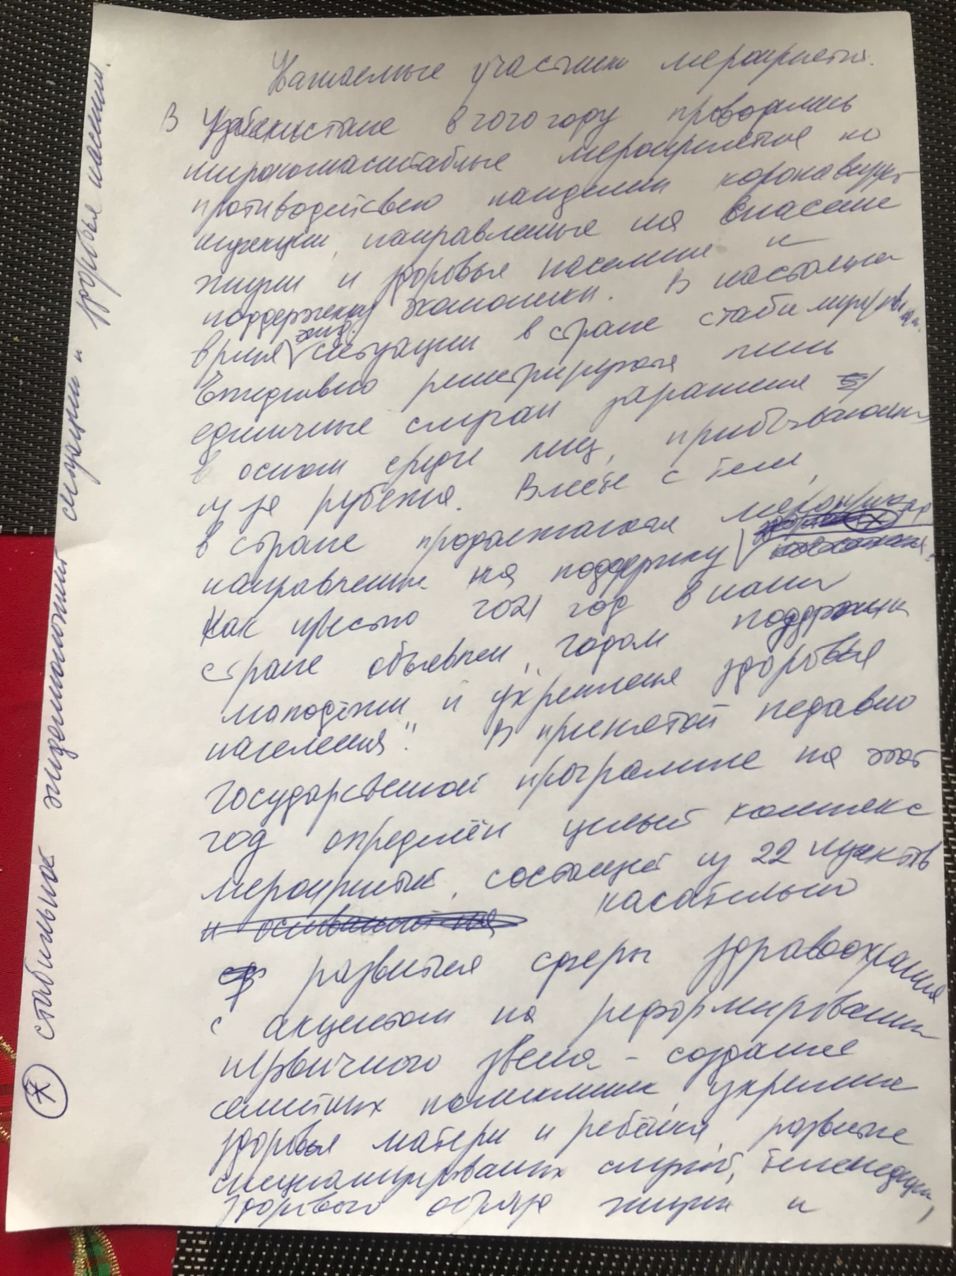 Уважаемые участники мероприятия.
В Узбекистане в 2020 году проводились
широкомасштабные мероприятия по
противодействию пандемии коронавирус
инфекции, направленные на спасение
жизни и здоровье население и
поддержку экономики. В настоящее
время эпид. ситуации в стране стабилизирована.
Ежедневно регистрируются лишь
единичные случаи заражения
в основ среди лиц, прибывающих
из за рубежа. Вместе с тем,
в стране продолжаются мероприят
направленные на поддержку
Как известно 2021 год в нашей
стране объявлен "годом поддержки
молодёжи и укрепления здоровья
населения". В принятой недавно
государственной программе на этот
год определён целый комплекс
мероприятий, состоящей из 22 пунктов
касательно
развития сферы здравоохранения
с акцентом на реформировании
первичного звена - создание
семейных поликлиник, укрепление
здоровья матери и ребёнка, развитие
специализированных служб, телемедицины,
здорового образа жизни и
* стабильной эпидемиологической ситуации и здоровья населения.